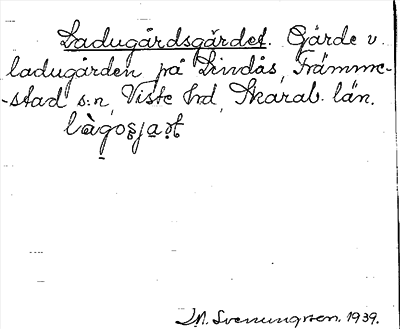 Ladugårdsgårdet. Gärde v.
ladugården på Lindås, Främme-
-stad s:n, Viste hd, Skarab. län.
Svenungsson. 1939.